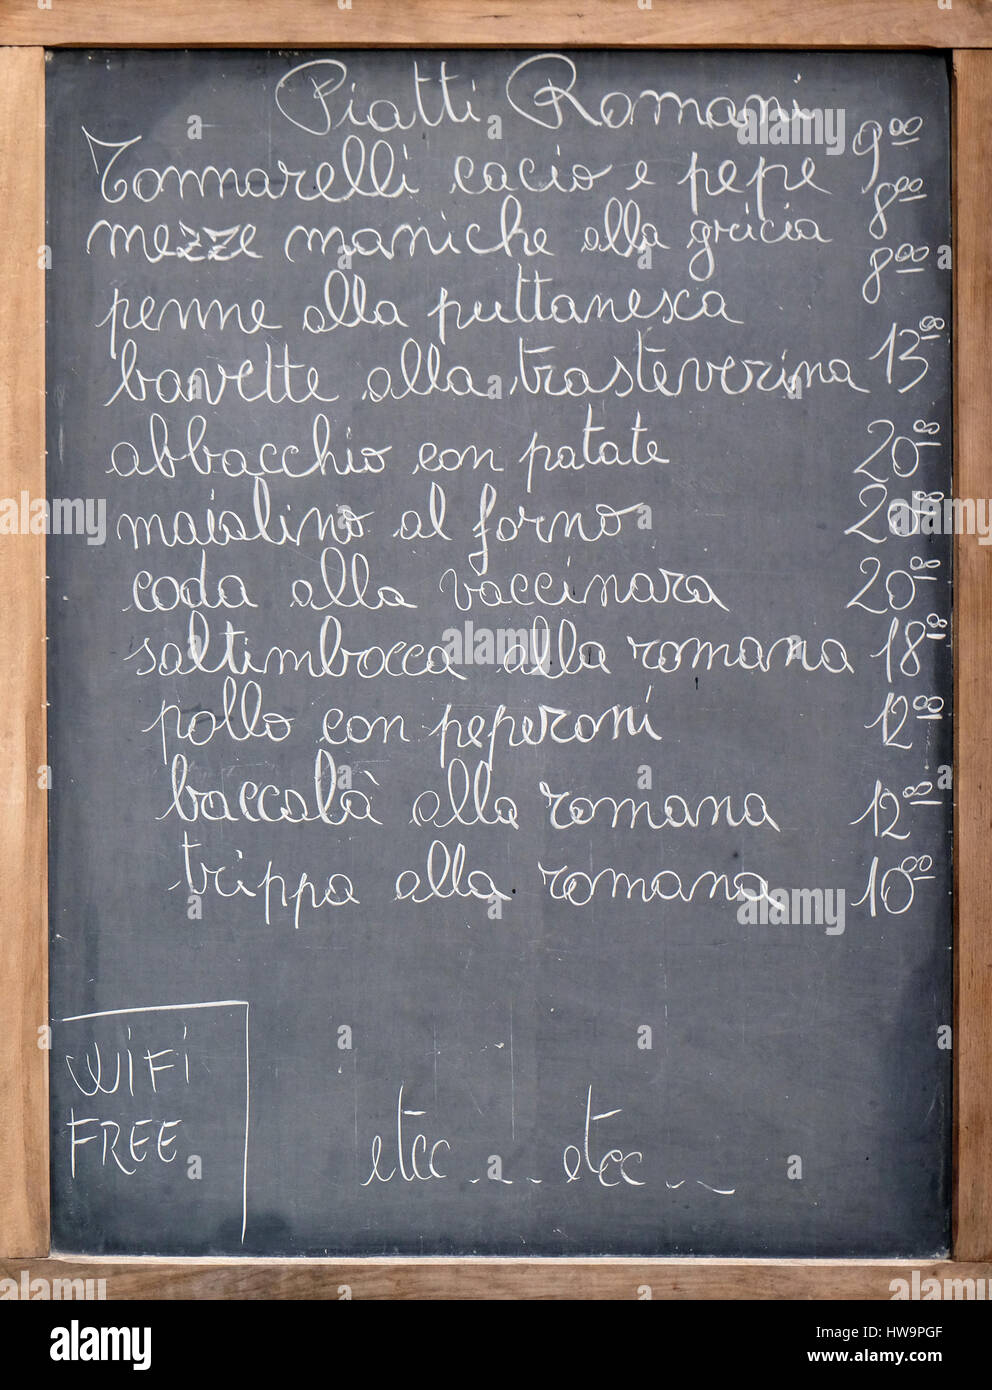 Piatti Romani
Tonnarelli cacio e pepe 9.00
mezze maniche alla gricia 8.00
penne alla puttanesca 8.00
bavette alla trasteverina 13.00
abbacchio con patate 20.00
maialino al forno 20.00
coda alla vaccinara 20.00
saltimbocca alla romana 18.00
pollo con peperoni 12.00
baccalà alla romana 12.00
trippa alla romana 10.00
WIFI
FREE
etcc ... etcc ...
alamy stock photo
HW9PGF
www.alamy.com